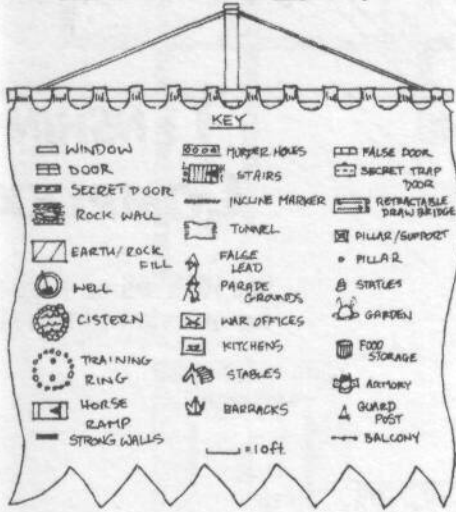 KEY
WINDOW
DOOR
SECRET DOOR
ROCK WALL
EARTH/ROCK
FILL
WELL
CISTERN
TRAINING
RING
HORSE
RAMP
STRONG WALLS
MURDER HOLES
STAIRS
INCLINE MARKER
TUNNEL
FALSE
LEAD
PARADE
GROUNDS
WAR OFFICES
KITCHENS
STABLES
BARRACKS
= 10ft.
FALSE DOOR
SECRET TRAP
DOOR
RETRACTABLE
DRAWBRIDGE
PILLAR/SUPPORT
PILLAR
STATUES
GARDEN
FOOD
STORAGE
ARMORY
GUARD
POST
BALCONY